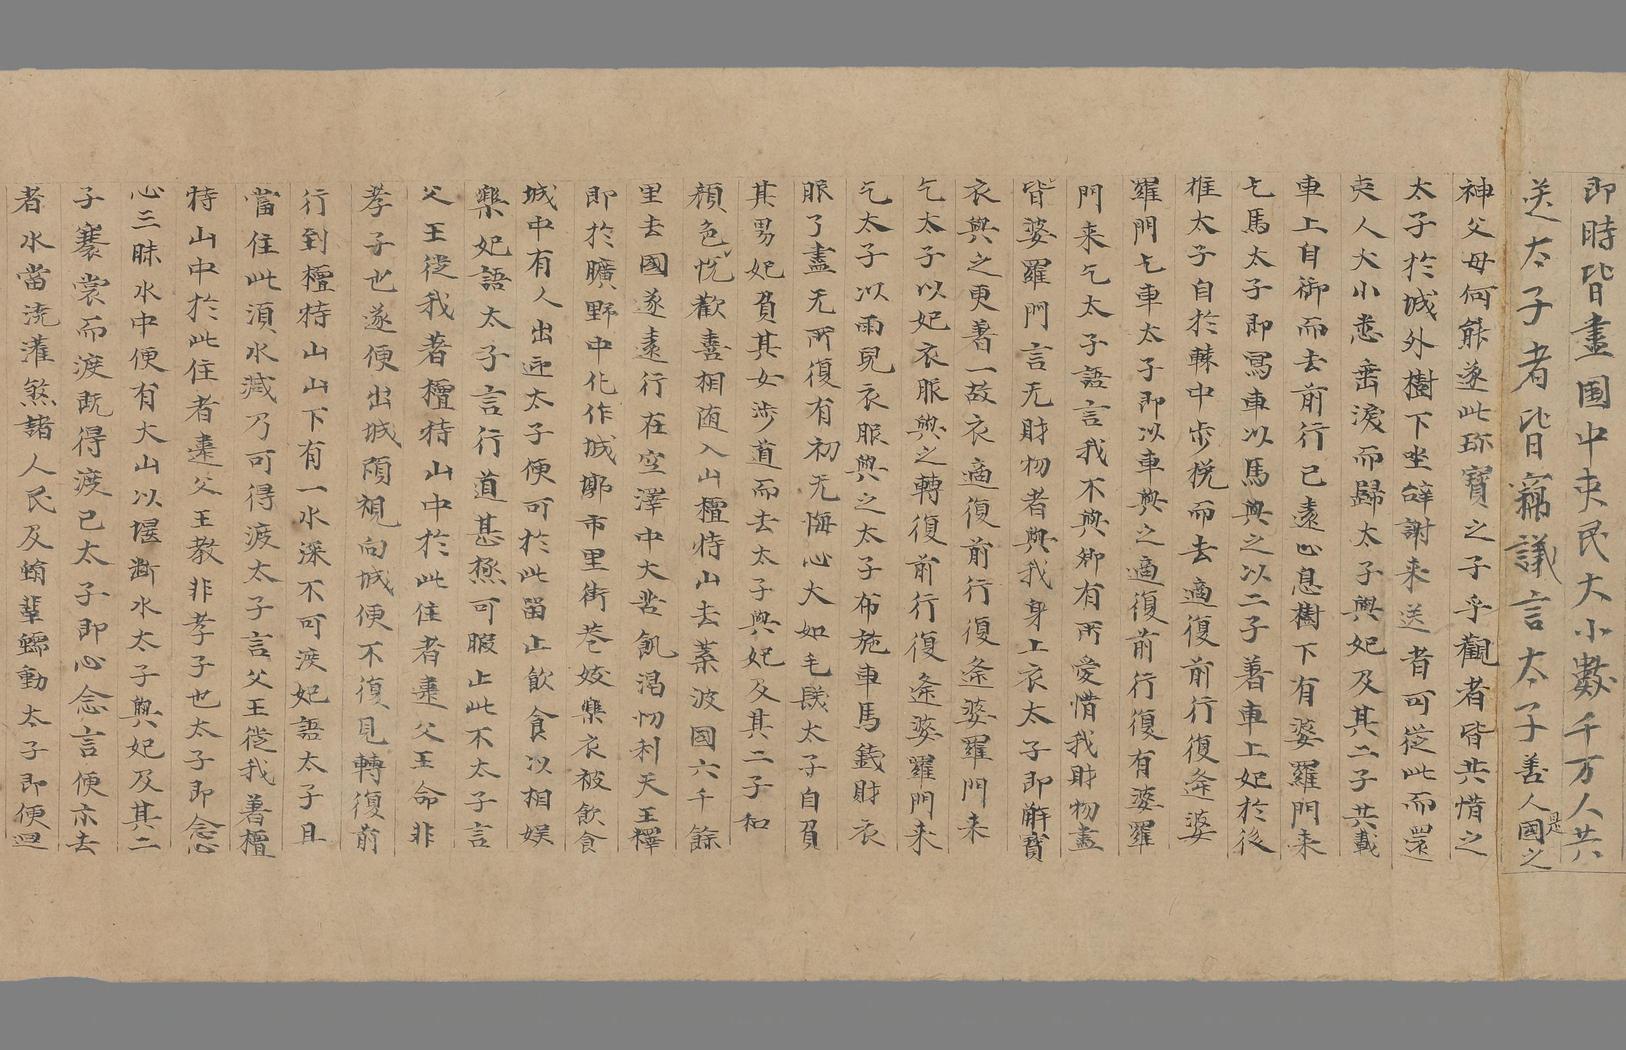 即時皆盡国中吏民大小數千万人共
送太子者皆竊議言太子善人是國之
神父母何能遂此珎寶之子乎觀者皆共惜之
太子於城外樹下坐辞謝来送者可從此而還
吏人大小悉垂淚而歸太子與妃及其二子共載
車上自御而去前行已遠止息樹下有婆羅門来
乞馬太子即寫車以馬與之以二子著車上妃於後
推太子自於轅中步挽而去適復前行復逢婆
羅門乞車太子即以車與之適復前行復有婆羅
門来乞太子語言我不與卿有所愛惜我財物盡
皆婆羅門言无財物者與我身上衣太子即解寳
衣與之更著一故衣適復前行復逢婆羅門来
乞太子以妃衣服與之轉復前行復逢婆羅門来
乞太子以兩兒衣服與之太子布施車馬錢財衣
服了盡无所復有初无悔心大如毛髮太子自負
其男妃負其女步道而去太子與妃及其二子和
顏色悅歡喜相随入山檀特山去葉波國六千餘
里去國遂遠行在空澤中大苦飢渴忉利天王釋
即於曠野中化作城郭市里街巷妓樂衣被飲食
城中有人出迎太子便可於此留止飲食以相娱
樂妃語太子言行道甚極可暇止此不太子言
父王徙我著檀特山中於此住者違父王命非
孝子也遂便出城顧視向城便不復見轉復前
行到檀特山山下有一水深不可渡妃語太子且
當住此須水減乃可得渡太子言父王徙我著檀
特山中於此住者違父王教非孝子也太子即念慈
心三昧水中便有大山以堰斷水太子與妃及其二
子褰裳而渡既得渡已太子即心念言便尒去
者水當澆灌煞諸人民及蜎蜚蠕動太子即便迴